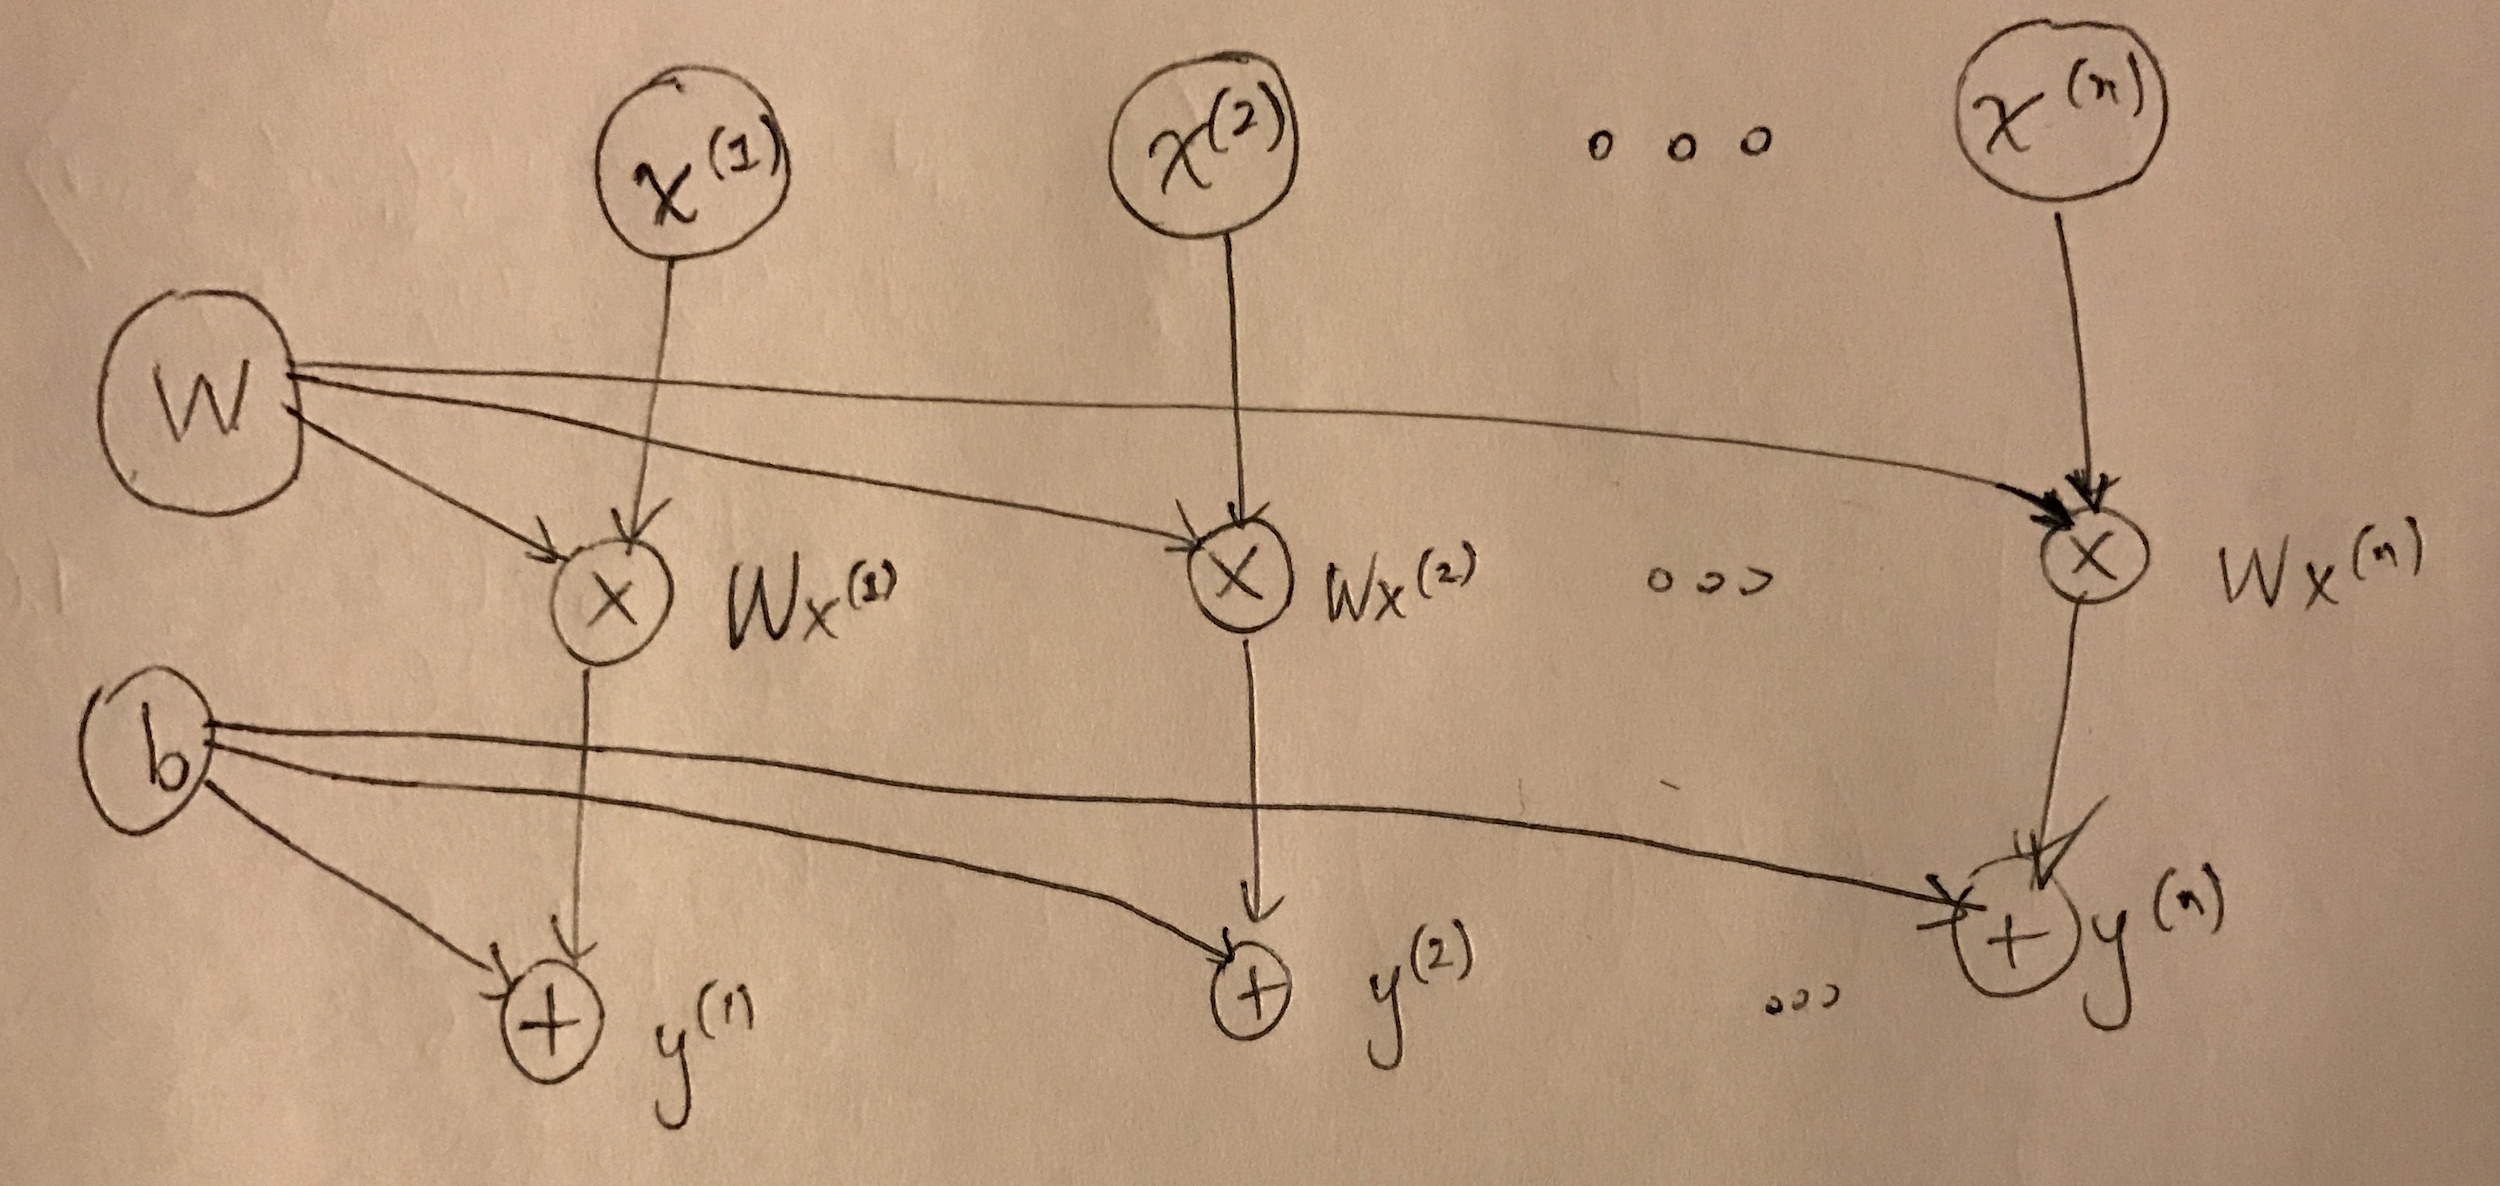 x^(1) x^(2) ∘ ∘ ∘ x^(n)
W
× Wx^(1) × Wx^(2) ∘ ∘ ∘ × Wx^(n)
b
+ y^(1) + y^(2) ∘ ∘ ∘ + y^(n)